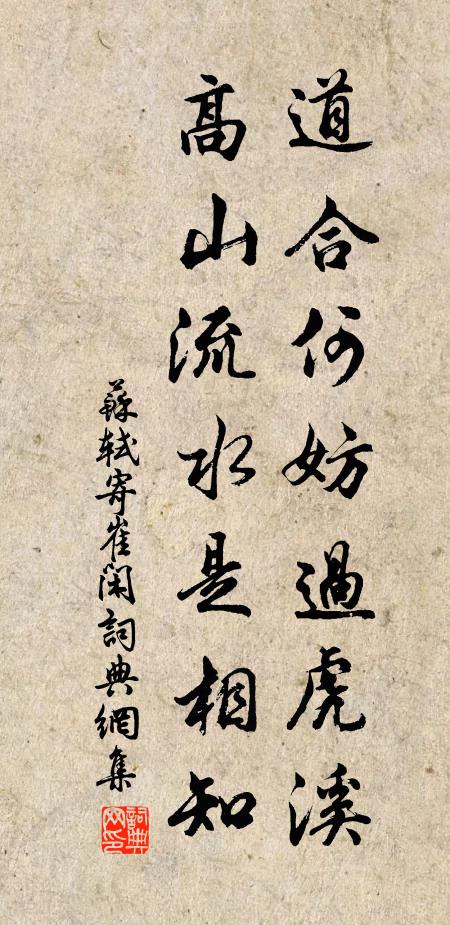 道合何妨過虎溪
高山流水是相知
蘇軾寄崔閑詞典網集
詞典網印